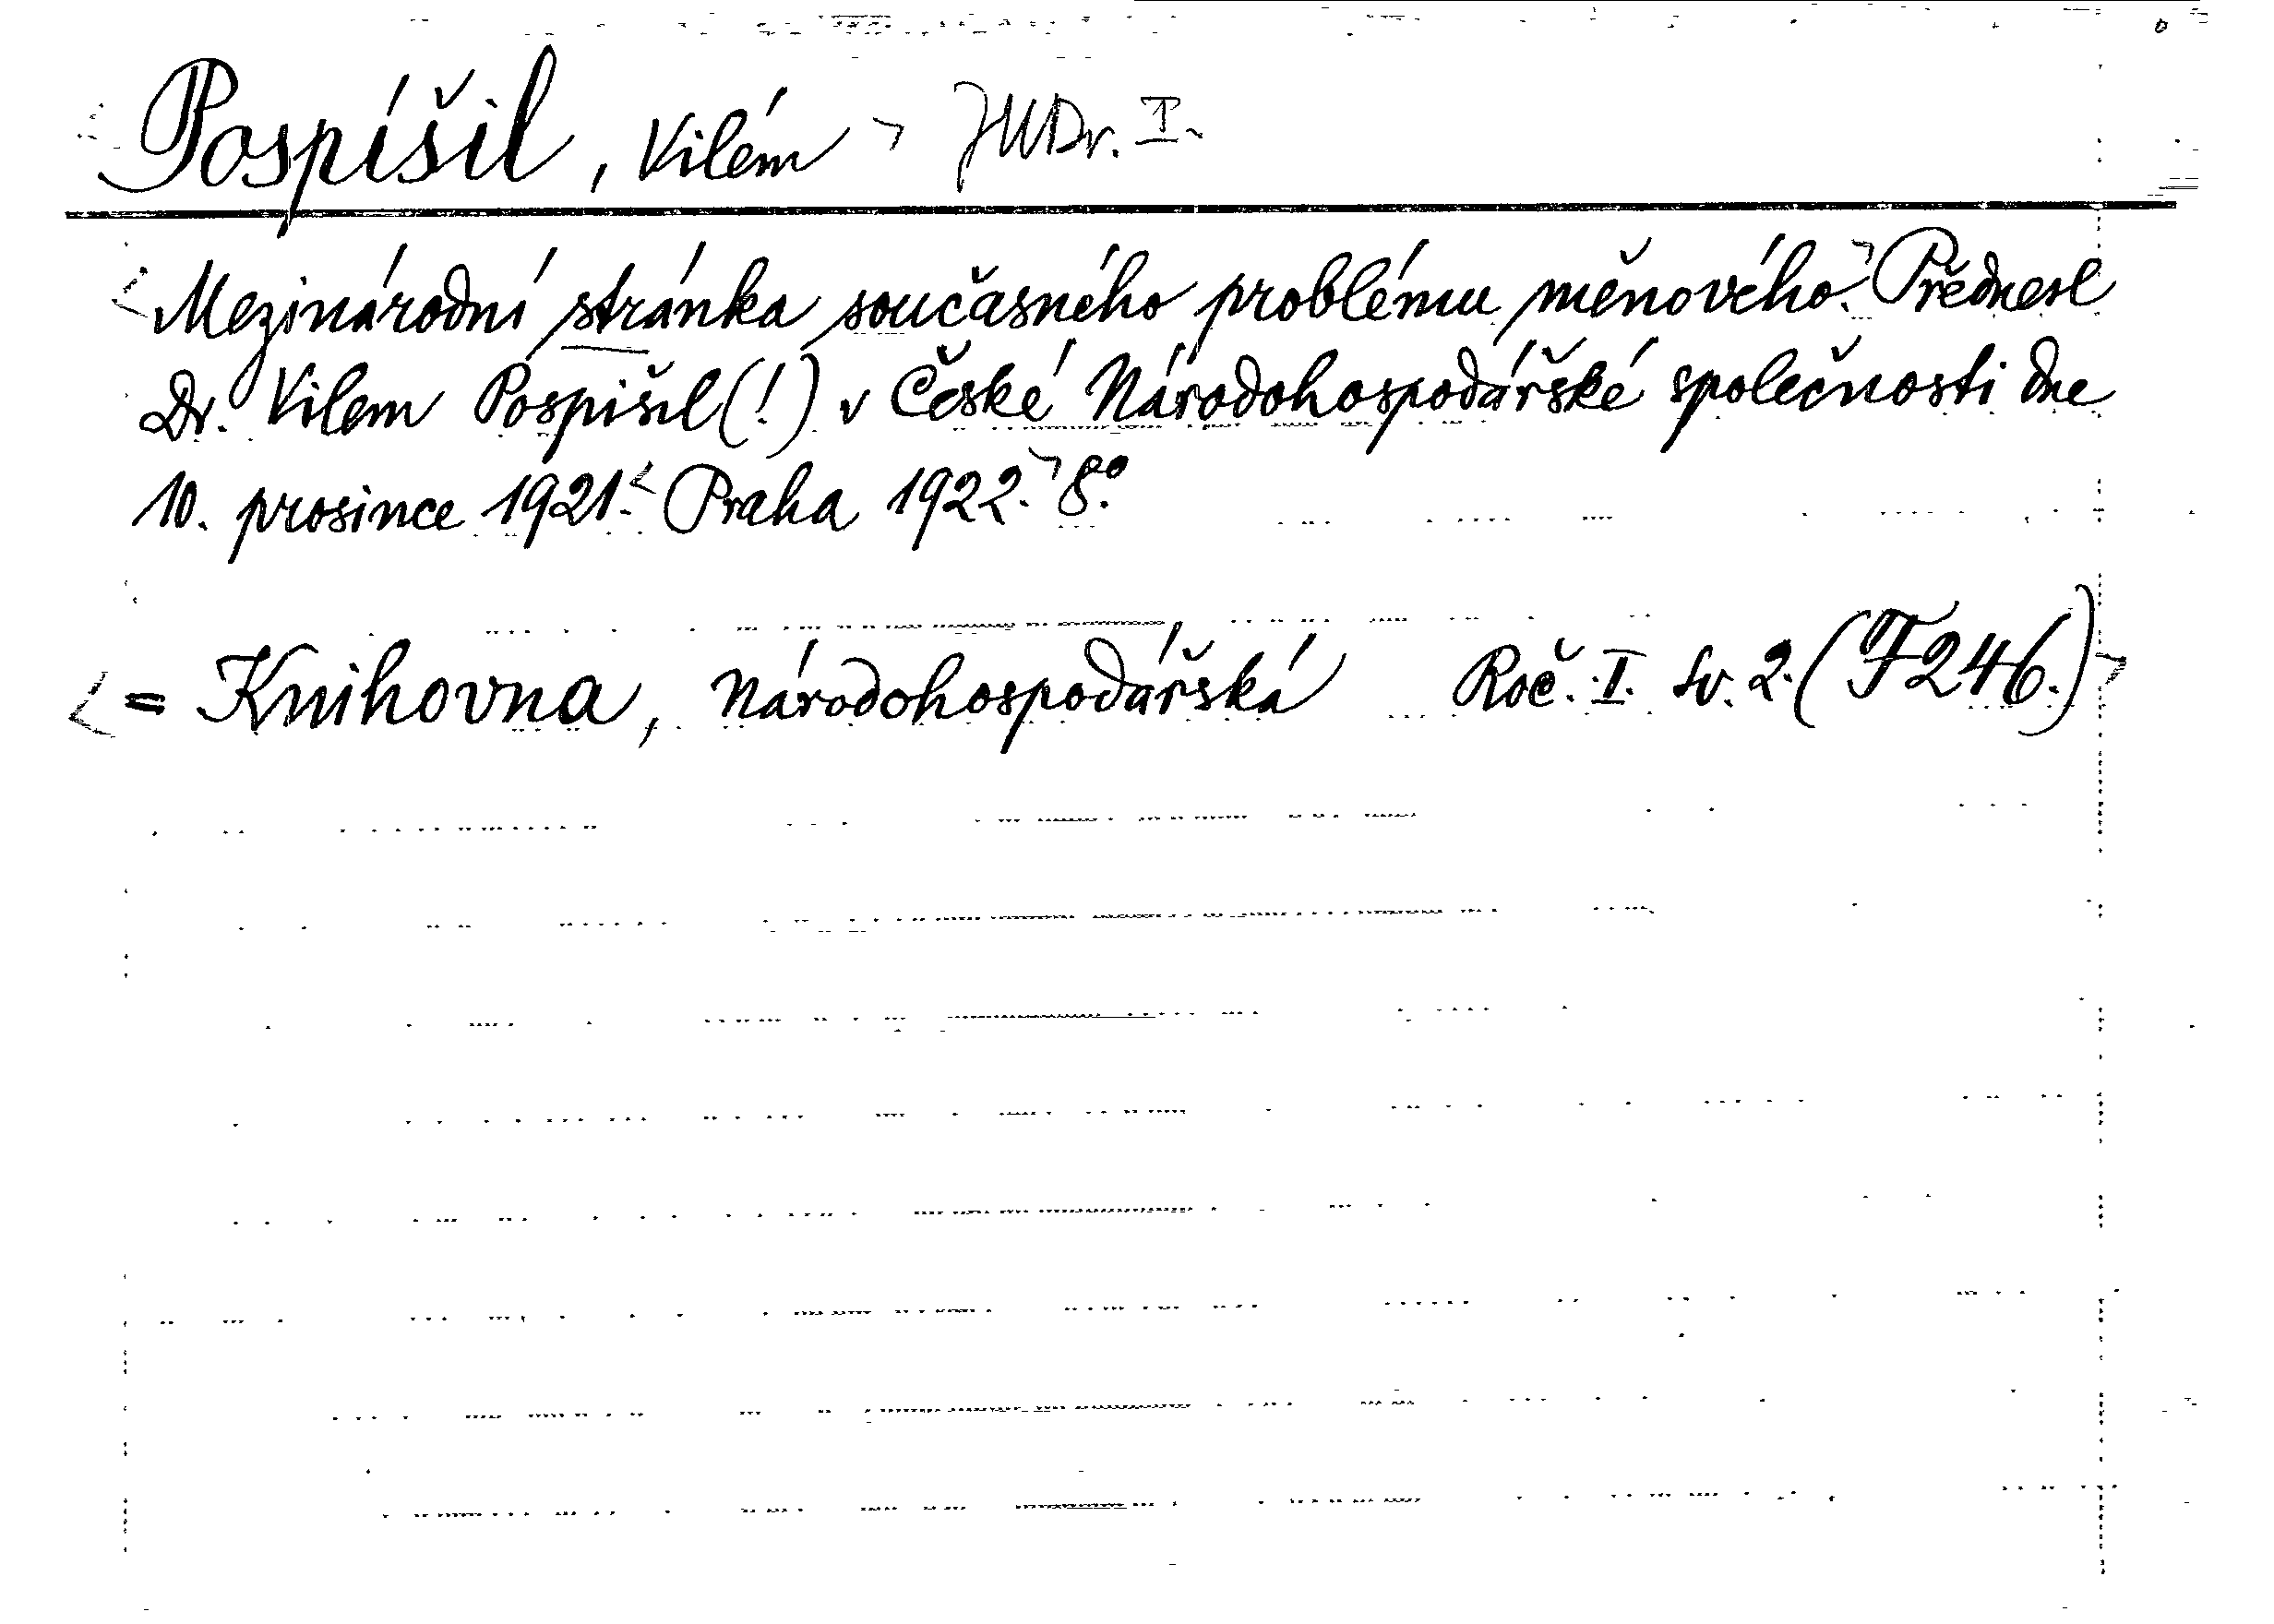 Pospíšil, Vilém JUDr. I.
Mezinárodní stránka současného problému měnového. Přednesl
Dr. Vilem Pospišil (!) v České Národohospodářské společnosti dne
10. prosince 1921. Praha 1922. 8°.
= Knihovna, národohospodářská Roč. I. sv. 2. (F246.)